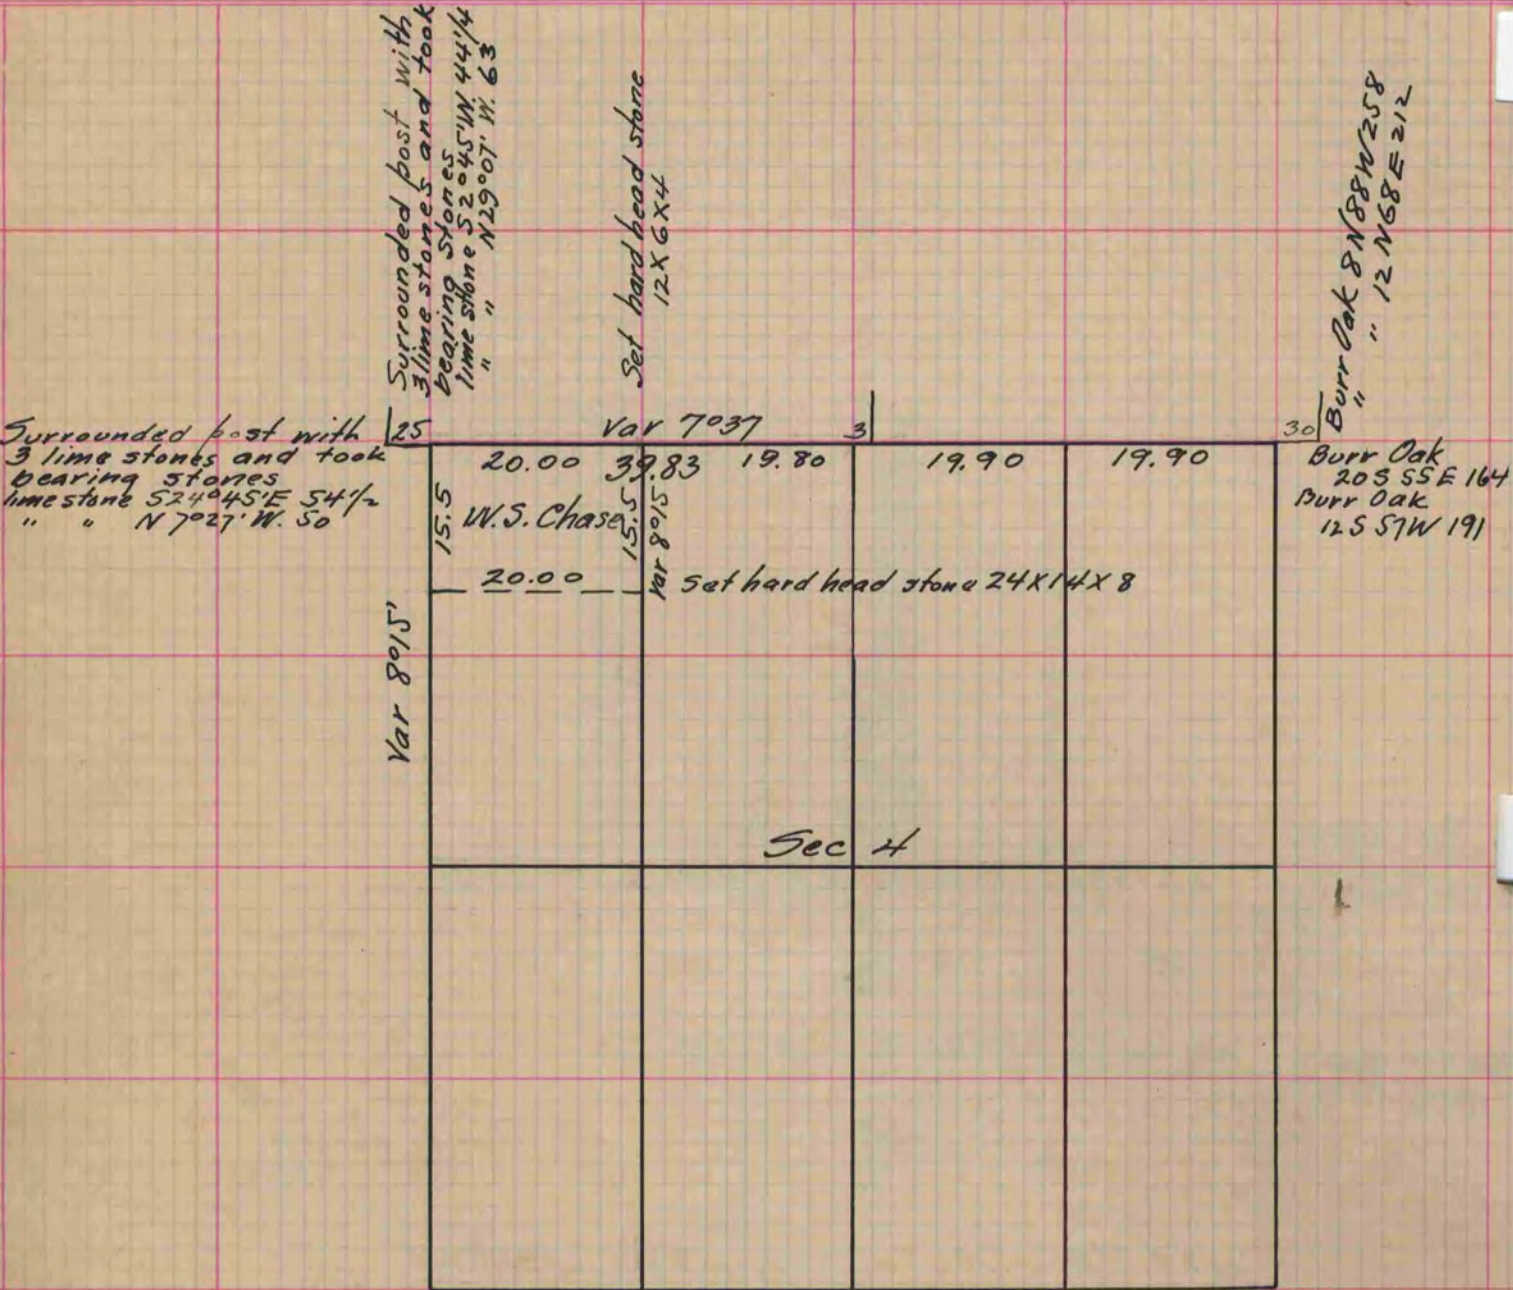 Surrounded post with
3 lime stones and took
bearing stones
lime stone S2°45'W. 44 1/4
" " N29°07' W. 63
Set hard head stone
12X6X4
Burr Oak 8 N88W258
" " 12 N68E212
Surrounded post with
3 lime stones and took
bearing stones
lime stone S24°45'E 54 1/2
" " N 7°27' W. 50
25
Var 7°37
3
30
Burr Oak
20 S 55 E 164
Burr Oak
12 S 57W 191
20.00 39.83 19.80 19.90 19.90
15.5
W.S. Chase
15.5
Var 8°15
20.00
Set hard head stone 24X14X8
Var 8°15'
Sec 4